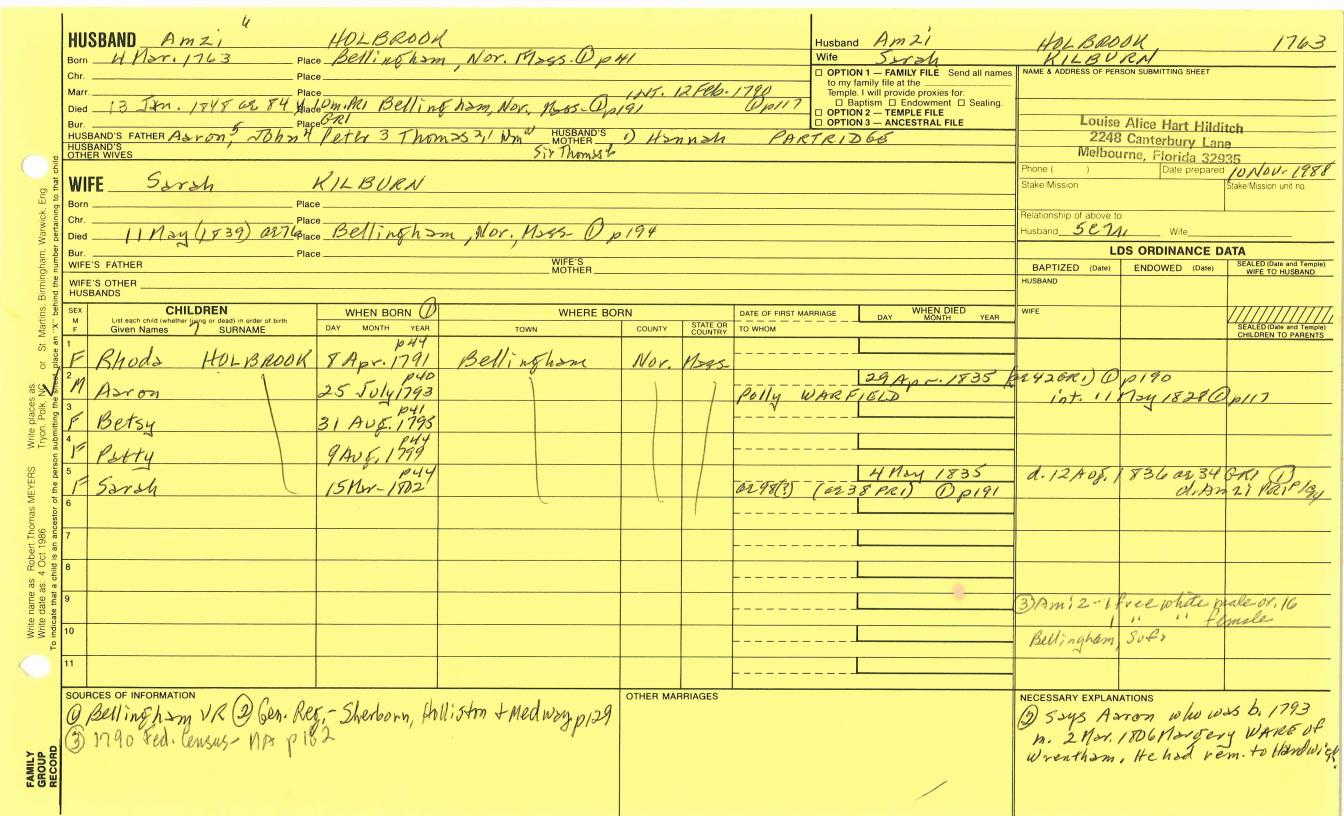 HUSBAND Amzi 6 HOLBROOK
Born 4 Mar. 1763 Place Bellingham, Nor. Mass. ① p41
Chr. Place
Marr. Place int. 12 Feb. 1790 ① p117
Died 13 Jan. 1848 ae 84 y 10m. PRI Place Bellingham, Nor. Mass- ① p191
Bur. Place GRI
HUSBAND'S FATHER Aaron 5, John 4 Peter 3 Thomas 2,1 Wm HUSBAND'S MOTHER 1) Hannah PARTRIDGE
HUSBAND'S OTHER WIVES Sir Thomas
WIFE Sarah KILBURN
Born Place
Chr. Place
Died 11 May (1839) ae 76 Place Bellingham, Nor., Mass- ① p194
Bur. Place
WIFE'S FATHER WIFE'S MOTHER
WIFE'S OTHER HUSBANDS
Husband Amzi HOLBROOK 1763
Wife Sarah KILBURN
☐ OPTION 1 — FAMILY FILE Send all names to my family file at the
Temple. I will provide proxies for:
☐ Baptism ☐ Endowment ☐ Sealing.
☐ OPTION 2 — TEMPLE FILE
☐ OPTION 3 — ANCESTRAL FILE
NAME & ADDRESS OF PERSON SUBMITTING SHEET
Louise Alice Hart Hilditch
2248 Canterbury Lane
Melbourne, Florida 32935
Phone ( ) Date prepared 10 Nov. 1988
Stake/Mission Stake/Mission unit no.
Relationship of above to
Husband 5c7r Wife
LDS ORDINANCE DATA
BAPTIZED (Date) ENDOWED (Date) SEALED (Date and Temple) WIFE TO HUSBAND
HUSBAND
WIFE
SEALED (Date and Temple) CHILDREN TO PARENTS
SEX M F CHILDREN WHEN BORN ① WHERE BORN DATE OF FIRST MARRIAGE WHEN DIED
List each child (whether living or dead) in order of birth
Given Names SURNAME DAY MONTH YEAR TOWN COUNTY STATE OR COUNTRY TO WHOM DAY MONTH YEAR
1 F Rhoda HOLBROOK 8 Apr. 1791 p44 Bellingham Nor. Mass
2 M Aaron 25 July 1793 p40 Polly WARFIELD 29 Apr. 1835 (ae 42 GRI) ① p190
int. 11 May 1828 ① p117
3 F Betsy 31 Aug. 1795 p41
4 F Patty 9 Aug. 1799 p44
5 F Sarah 15 Mar- 1802 p44 4 May 1835 d. 12 Aug. 1836 ae 34 GRI ①
ae 98(?) (ae 38 PRI) ① p191 d. Amzi PRI
6
7
8
9
10
11
③ Ami 2 - 1 free white male ov. 16
1 " " female
Bellingham, Suf.
SOURCES OF INFORMATION
① Bellingham VR ② Gen. Reg.- Sherborn, Holliston + Medway p129
③ 1790 Fed. Census- MA p182
OTHER MARRIAGES
NECESSARY EXPLANATIONS
② Says Aaron who was b. 1793
m. 2 Mar. 1806 Margery WARE of
Wrentham. He had rem. to Hardwick.
Write name as Robert Thomas MEYERS Write places as Tryon, Polk, NC or St Martins, Birmingham, Warwick, Eng
Write date as 4 Oct 1986
To indicate that a child is an ancestor of the person submitting the sheet, place an "X" behind the number pertaining to that child
FAMILY GROUP RECORD